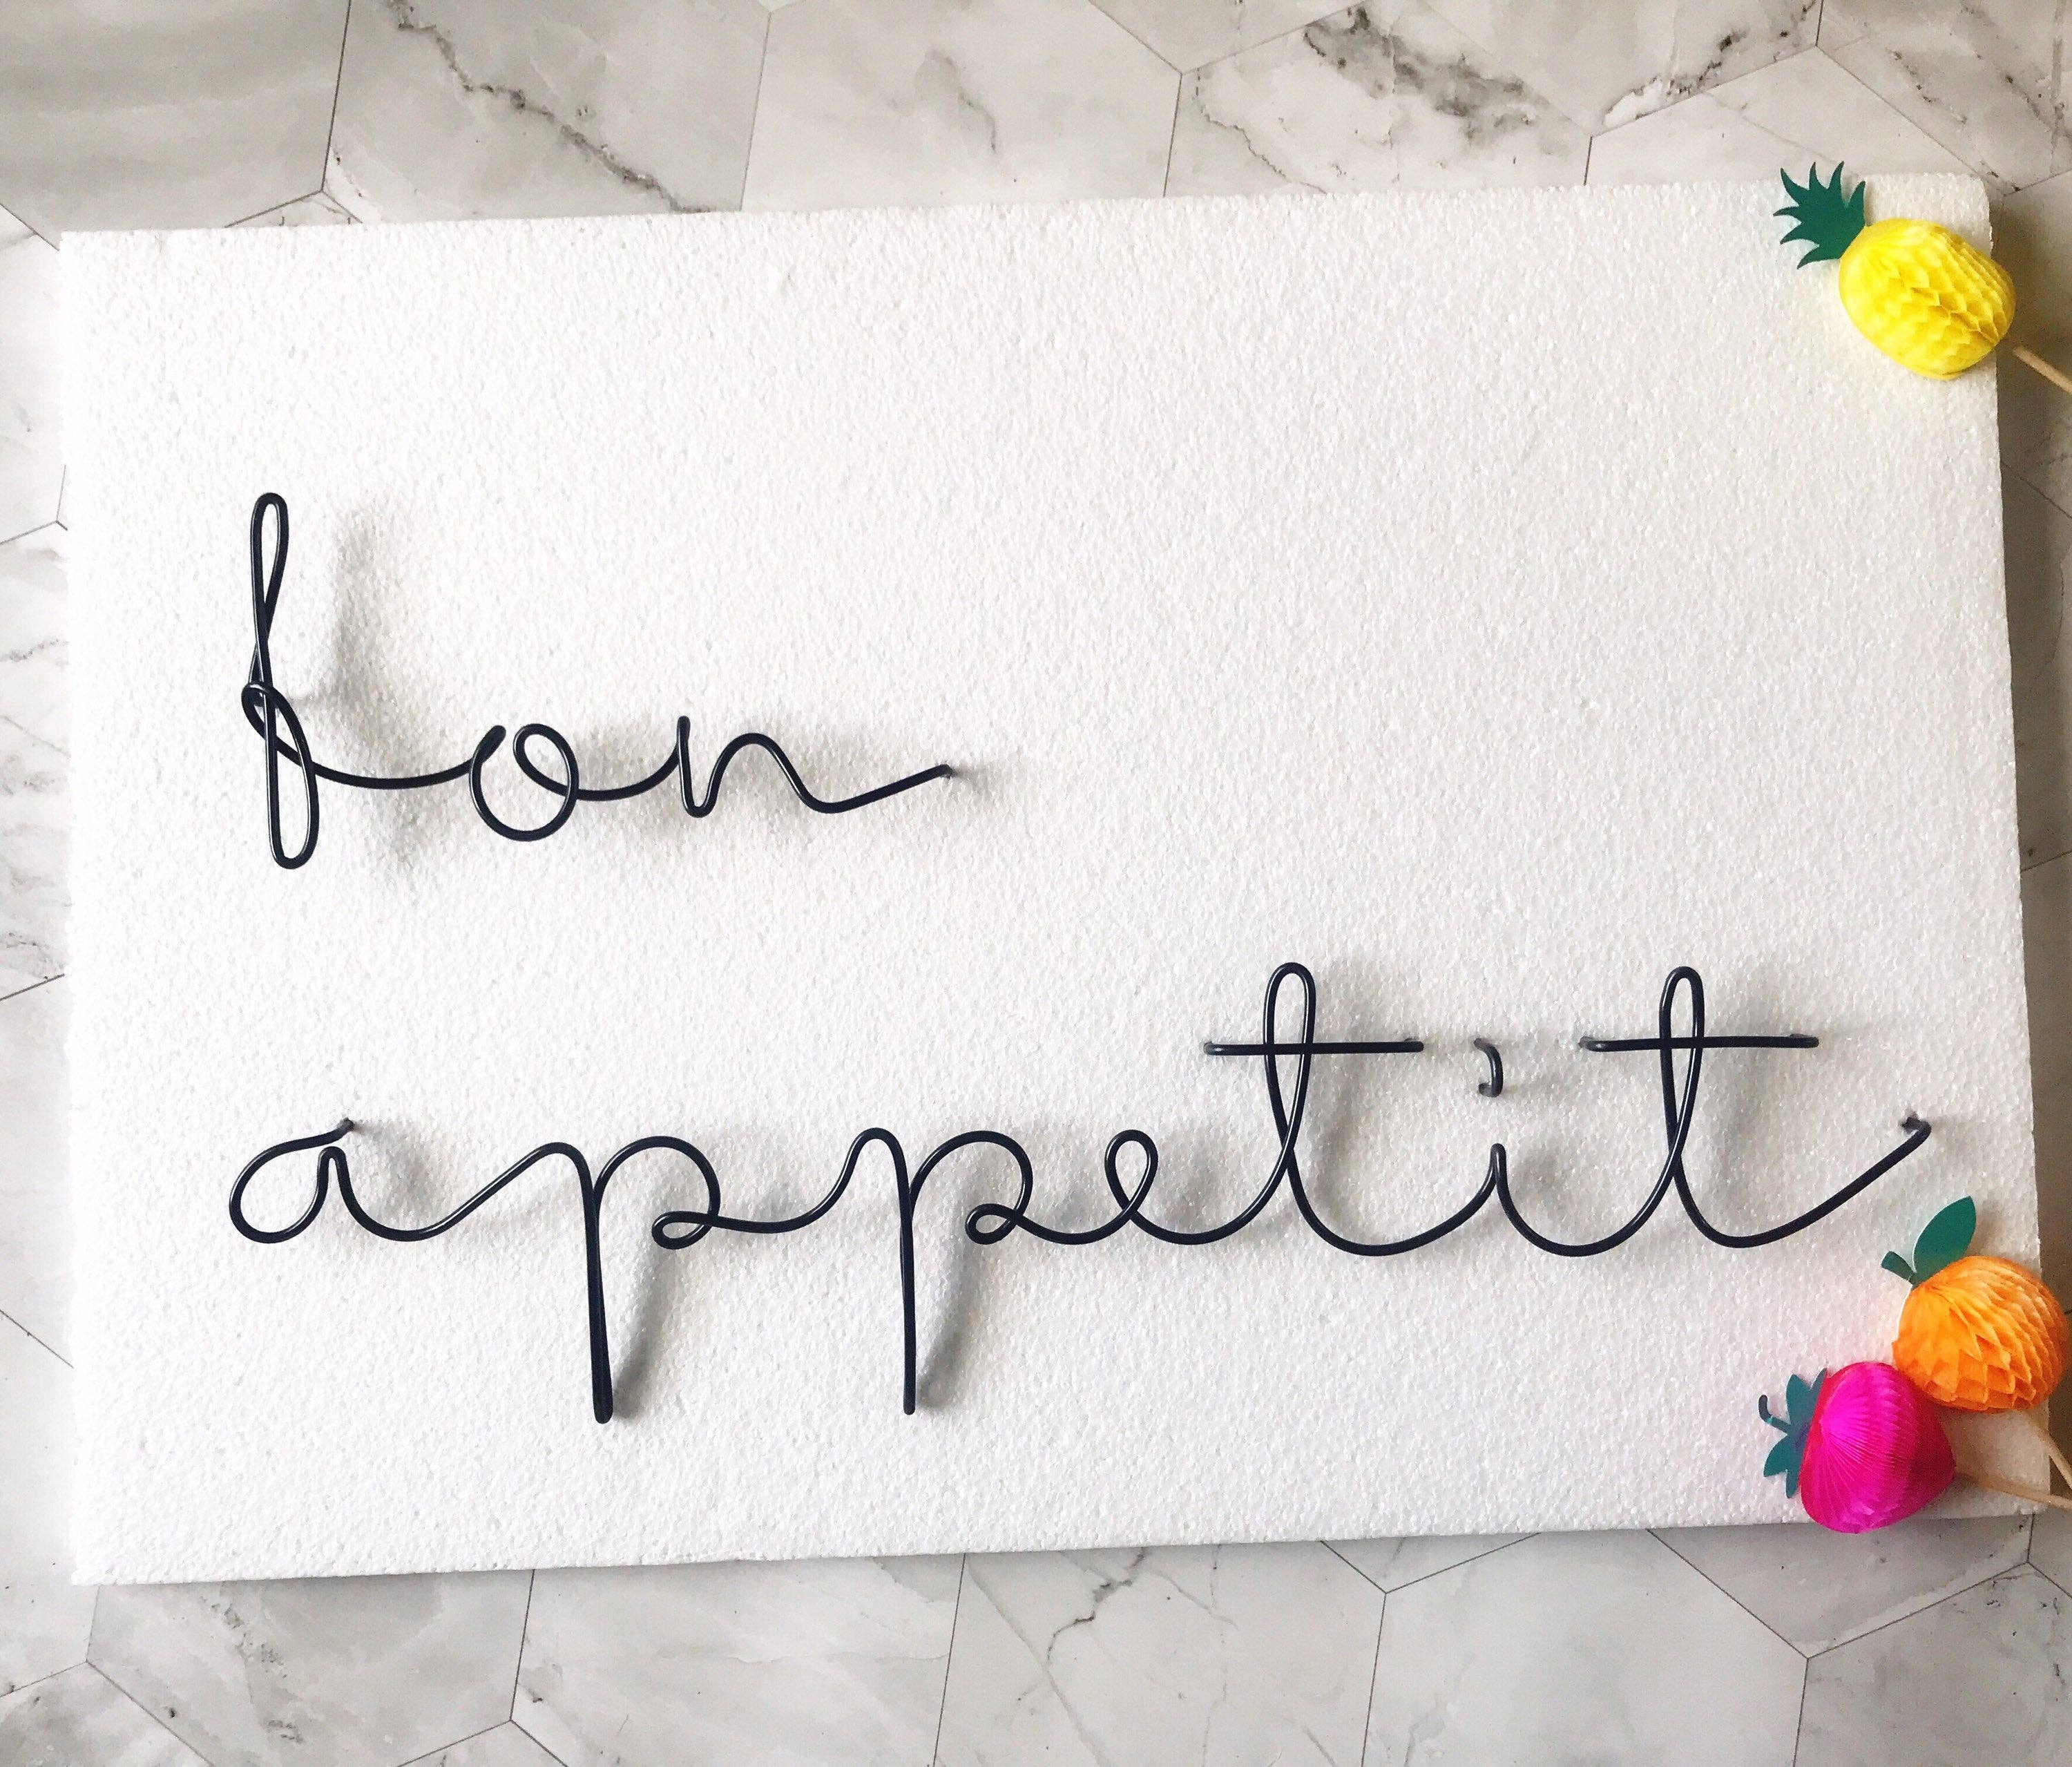 fon
appetit